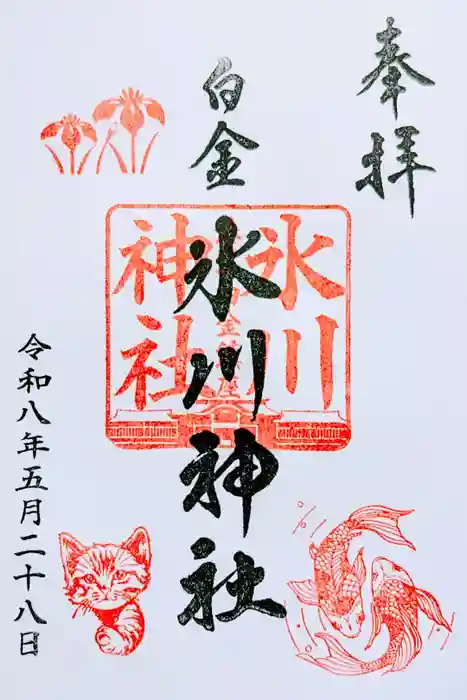 奉拝
白金
氷川神社
氷川
神社
令和八年五月二十八日